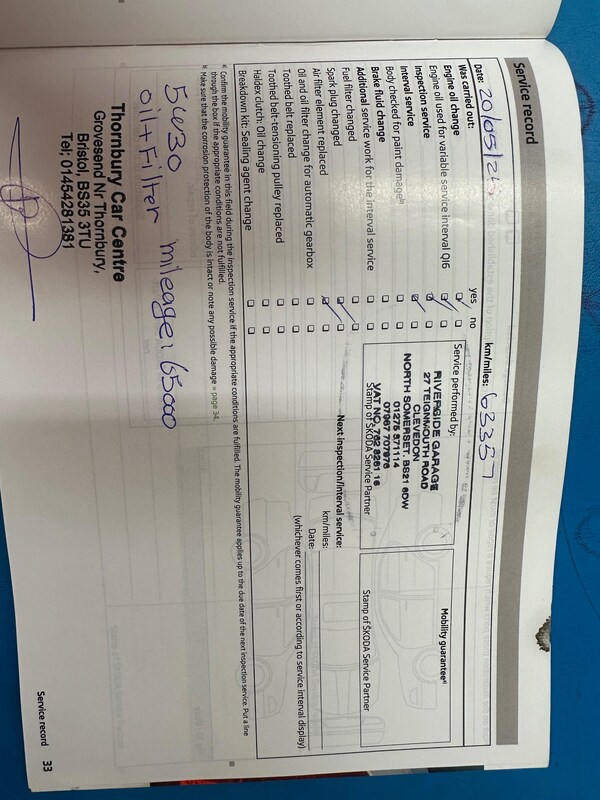 Service record
Date: 20/05/25 km/miles: 63357
Was carried out: yes no
Engine oil change
Engine oil used for variable service interval QI6
Inspection service
Interval service
Body checked for paint damageb)
Brake fluid change
Additional service work for the interval service
Fuel filter changed
Spark plug changed
Air filter element replaced
Oil and oil filter change for automatic gearbox
Toothed belt replaced
Toothed belt-tensioning pulley replaced
Haldex clutch: Oil change
Breakdown kit: Sealing agent change
Service performed by:
RIVERSIDE GARAGE
27 TEIGNMOUTH ROAD
CLEVEDON
NORTH SOMERSET. BS21 6DW
01275 571114
07967 707976
VAT NO. 762 8261 16
Stamp of ŠKODA Service Partner
Mobility guaranteea)
Stamp of ŠKODA Service Partner
Next inspection/interval service:
km/miles:
Date:
(whichever comes first or according to service interval display)
a) Confirm the mobility guarantee in this field during the inspection service if the appropriate conditions are fulfilled. The mobility guarantee applies up to the due date of the next inspection service. Put a line
through the box if the appropriate conditions are not fulfilled.
b) Make sure that the corrosion protection of the body is intact or note any possible damage » page 34.
5W30
oil + Filter mileage: 65000
Thornbury Car Centre
Grovesend Nr Thornbury,
Bristol, BS35 3TU
Tel; 01454281381
Service record 33